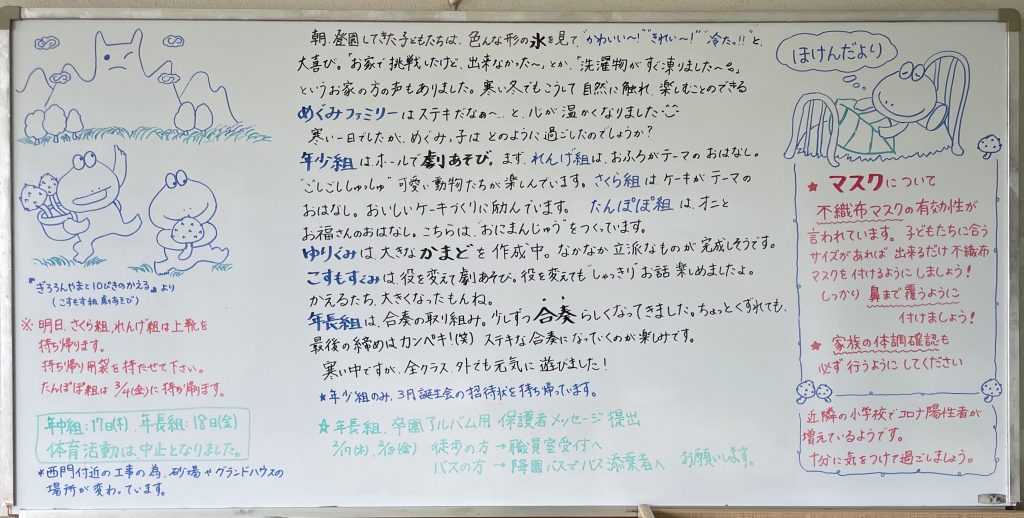 『ぎろろんやまと10ぴきのかえる』より
(こすもす組 劇あそび)
※ 明日、さくら組、れんげ組は上靴を
持ち帰ります。
持ち帰り用袋を持たせて下さい。
たんぽぽ組は 3/4(金)に持ち帰ります。
年中組:17日(木)、年長組:18日(金)
体育活動は中止となりました。
*西門付近の工事の為、砂場やグランドハウスの
場所が変わっています。
朝、登園してきた子どもたちは、色んな形の氷を見て、"かわいい〜!""きれい〜!""冷た。!!"と、
大喜び。"お家で挑戦したけど、出来なかった〜"とか、"洗濯物がすぐ凍りました〜"
というお家の方の声もありました。寒い冬でもこうして自然に触れ、楽しむことのできる
めぐみファミリーはステキだなぁ〜…と、心が温かくなりました
寒い一日でしたが、めぐみっ子はどのように過ごしたのでしょうか?
年少組は、ホールで劇あそび。まず、れんげ組は、おふろがテーマのおはなし。
"ごしごししゅっしゅっ"可愛い動物たちが楽しんでいます。さくら組は、ケーキがテーマの
おはなし。おいしいケーキづくりに励んでいます。 たんぽぽ組は、オニと
お福さんのおはなし。こちらは、"おにまんじゅう"をつくっています。
ゆりぐみは、大きなかまどを作成中。なかなか立派なものが完成しそうです。
こすもすぐみは、役を変えて劇あそび。役を変えても"しゅっきり"お話楽しめましたよ。
かえるたち、大きくなったもんね。
年長組は、合奏の取り組み。少しずつ合奏らしくなってきました。ちょっとくずれても、
最後の締めはカンペキ!(笑) ステキな合奏になっていくのが楽しみです。
寒い中ですが、全クラス、外でも元気に遊びました!
*年少組のみ、3月誕生会の招待状を持ち帰っています。
☆年長組、卒園アルバム用 保護者メッセージ提出
2/17(木)、2/18(金) 徒歩の方→職員室受付へ
バスの方→降園バスでバス添乗者へ お願いします。
ほけんだより
★ マスクについて
不織布マスクの有効性が
言われています。子どもたちに合う
サイズがあれば 出来るだけ 不織布
マスクを付けるように しましょう!
しっかり 鼻まで覆うように
付けましょう!
★ 家族の体調確認も
必ず行うように してください
近隣の小学校でコロナ陽性者が
増えているようです。
十分に気をつけて過ごしましょう。